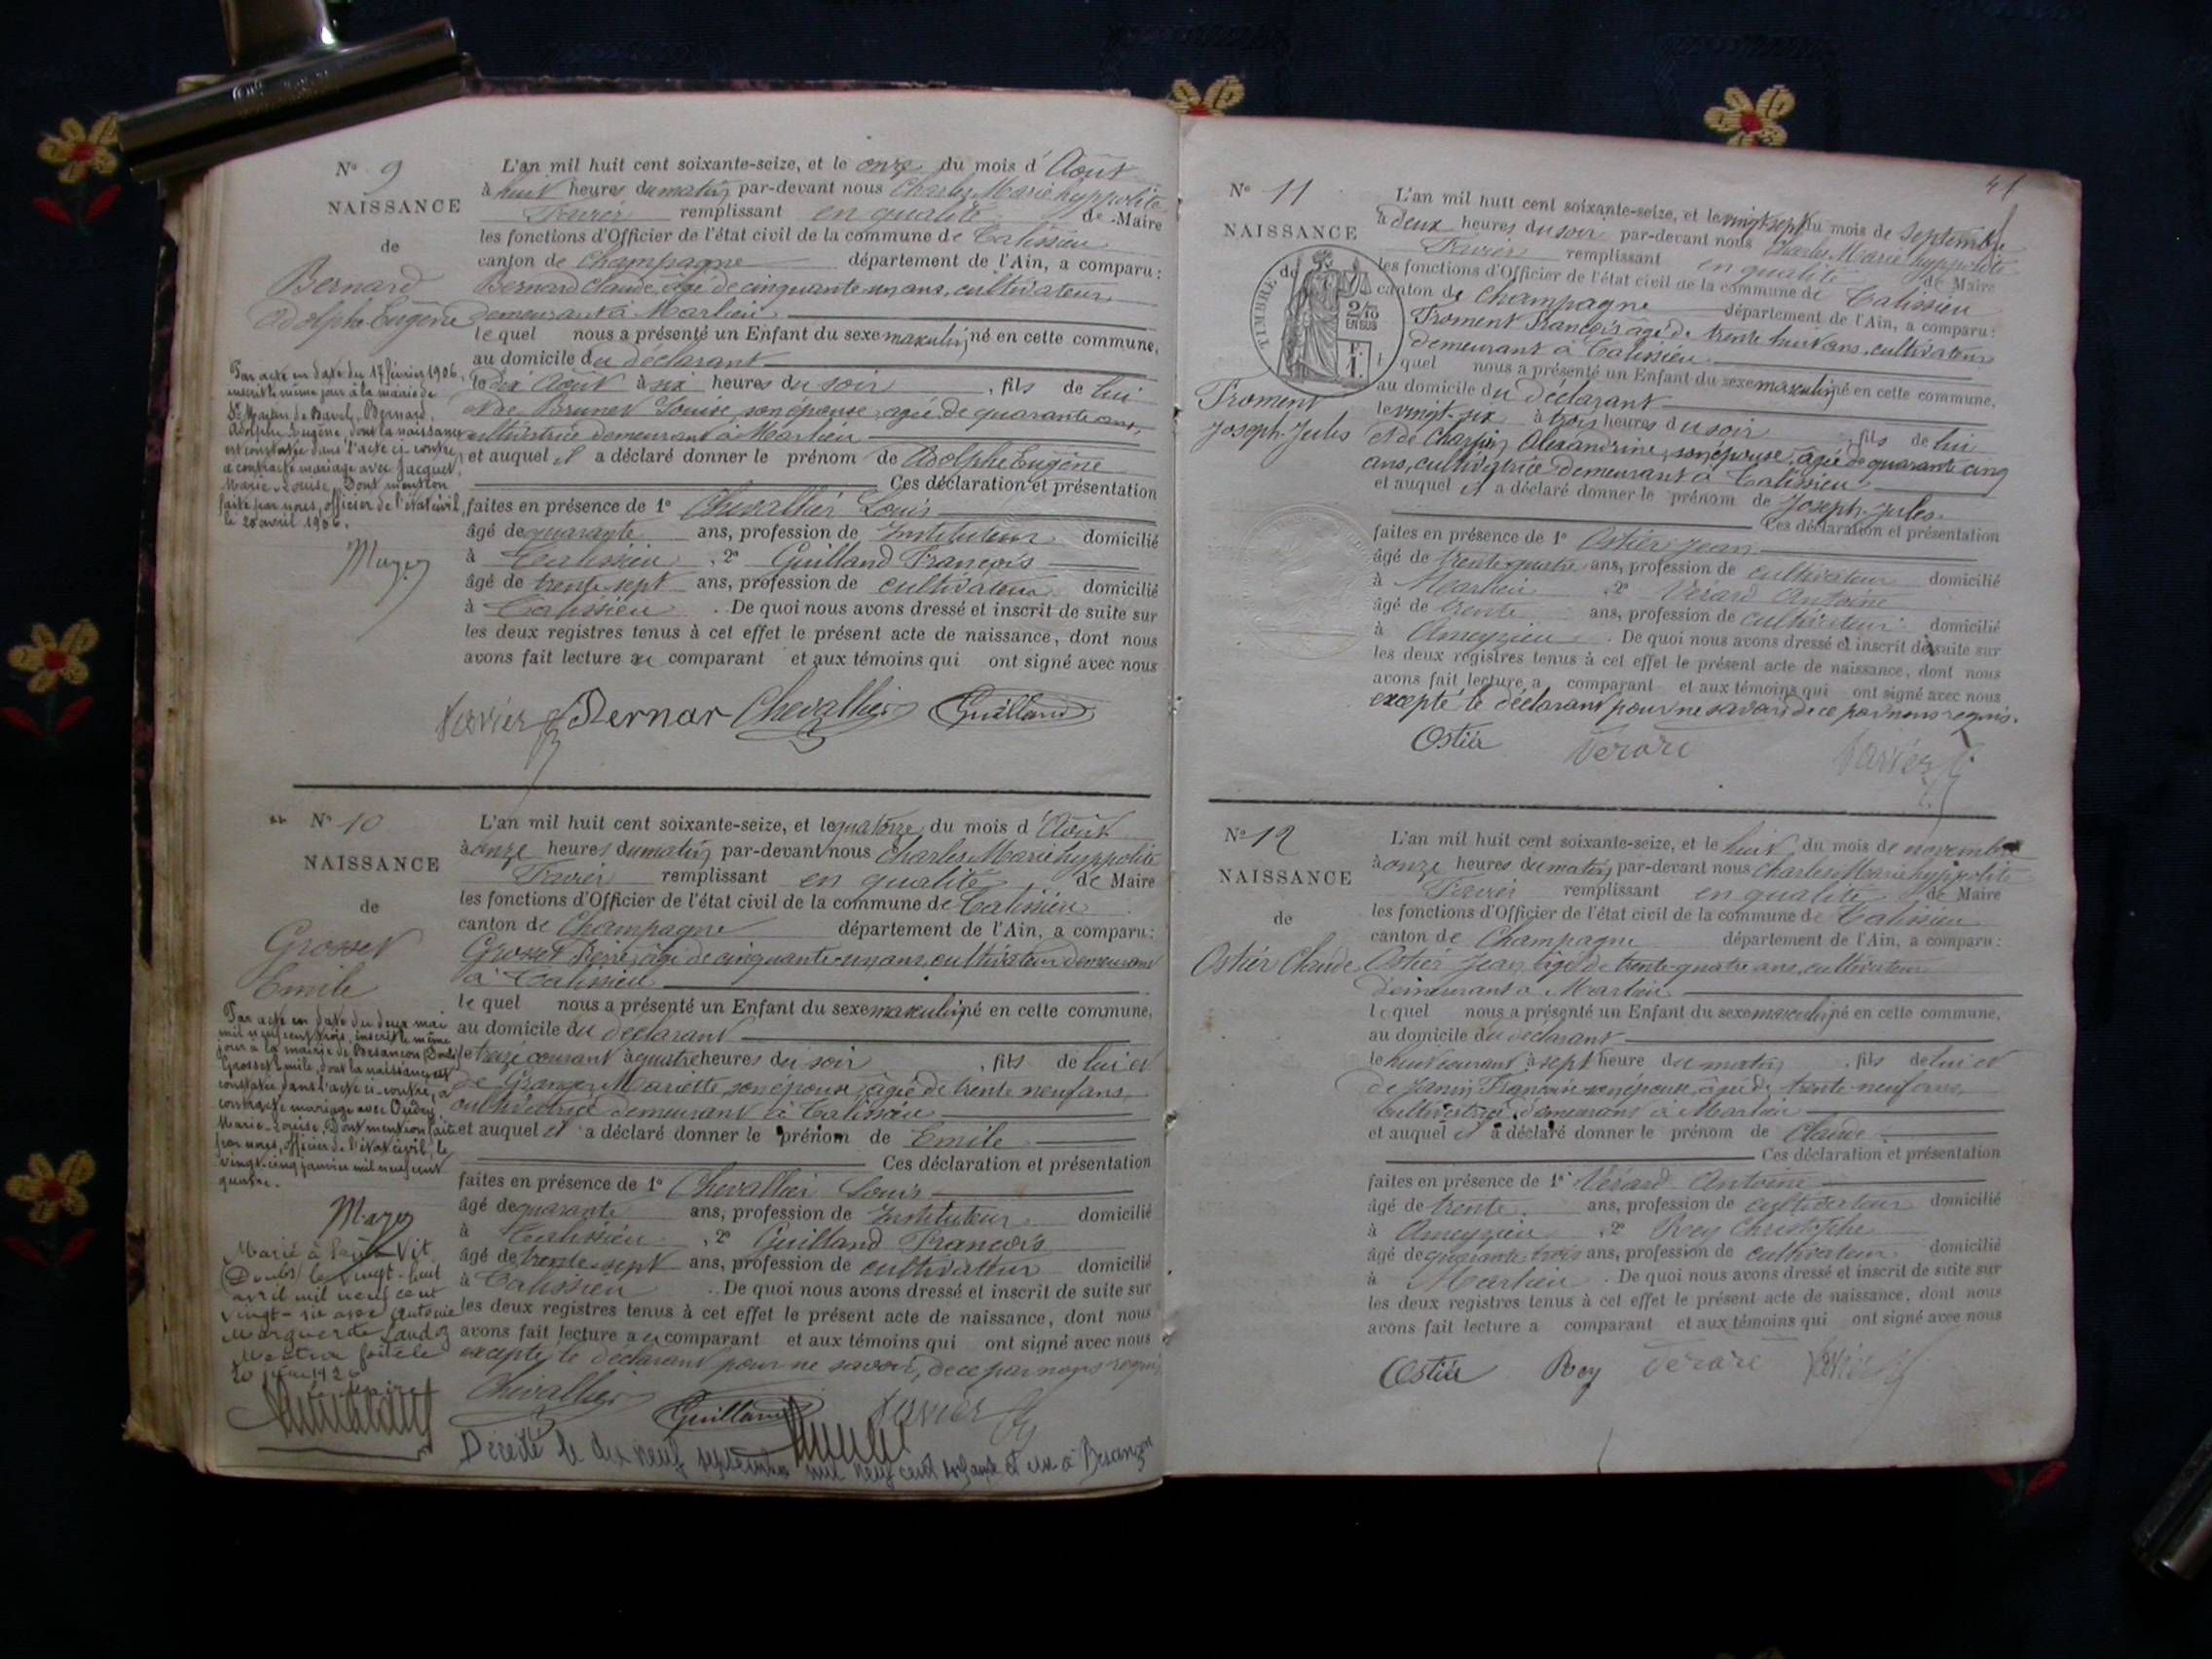 N° 9
NAISSANCE
de
Bernard
Adolphe Eugène
Par acte en date du 17 février 1906,
inscrit le même jour à la mairie de
St Martin de Bavel, Bernard,
Adolphe Eugène, dont la naissance
est constatée dans l'acte ci-contre,
a contracté mariage avec Jacquet,
Marie-Louise. Dont mention
faite par nous, officier de l'état civil,
le 28 avril 1906.
L'an mil huit cent soixante-seize, et le onze du mois d'Août
à huit heures du matin, par-devant nous Charles Marie hyppolite
remplissant en qualité de Maire
les fonctions d'Officier de l'état civil de la commune de Talissieu
canton de Champagne département de l'Ain, a comparu:
Bernard Claude, âgé de cinquante-un ans, cultivateur
demeurant à Marlieu
le quel nous a présenté un Enfant du sexe masculin, né en cette commune,
au domicile du déclarant
le dix Août à six heures du soir, fils de lui
et de Brunet Louise, son épouse, agée de quarante ans,
cultivatrice demeurant à Marlieu
et auquel il a déclaré donner le prénom de Adolphe Eugène
Ces déclaration et présentation
faites en présence de 1° Chevallier Louis
âgé de quarante ans, profession de Instituteur domicilié
à Talissieu, 2° Guilland François
âgé de trente-sept ans, profession de cultivateur domicilié
à Talissieu. De quoi nous avons dressé et inscrit de suite sur
les deux registres tenus à cet effet le présent acte de naissance, dont nous
avons fait lecture au comparant et aux témoins qui ont signé avec nous
Bernar Chevallier Guilland
N° 10
NAISSANCE
de
Grosset
Emile
Par acte en date du deux mai
mil neuf cent trois, inscrit le même
jour à la mairie de Besançon (Doubs)
Grosset Emile, dont la naissance est
constatée dans l'acte ci-contre, a
contracté mariage avec
Marie-Louise. Dont mention faite
par nous, officier de l'état civil, le
vingt-cinq janvier mil neuf cent
quatre.
Marié à Saint Vit
(Doubs) le vingt-huit
avril mil neuf cent
vingt-six avec Antonie
Marguerite
Mention faite le
L'an mil huit cent soixante-seize, et le quatorze du mois d'Août
à onze heures du matin, par-devant nous Charles Marie hyppolite
remplissant en qualité de Maire
les fonctions d'Officier de l'état civil de la commune de Talissieu
canton de Champagne département de l'Ain, a comparu:
Grosset Pierre, âgé de cinquante-un ans, cultivateur demeurant
à Talissieu
le quel nous a présenté un Enfant du sexe masculin, né en cette commune,
au domicile du déclarant
le treize courant à quatre heures du soir, fils de lui et
de Granger Mariette, son épouse, âgée de trente neuf ans,
cultivatrice demeurant à Talissieu
et auquel il a déclaré donner le prénom de Emile
Ces déclaration et présentation
faites en présence de 1° Chevallier Louis
âgé de quarante ans, profession de Instituteur domicilié
à Talissieu, 2° Guilland François
âgé de trente-sept ans, profession de cultivateur domicilié
à Talissieu. De quoi nous avons dressé et inscrit de suite sur
les deux registres tenus à cet effet le présent acte de naissance, dont nous
avons fait lecture au comparant et aux témoins qui ont signé avec nous
excepté le déclarant pour ne savoir, de ce par nous requis
Chevallier Guilland
Décédé le dix neuf septembre mil neuf cent soixante et un à Besançon
N° 11
NAISSANCE
de
TIMBRE
2/10
EN SUS
Froment
Joseph-Jules
L'an mil huit cent soixante-seize, et le vingt-sept du mois de septembre
à deux heures du soir par-devant nous Charles Marie hyppolite
remplissant en qualité de Maire
les fonctions d'Officier de l'état civil de la commune de Talissieu
canton de Champagne département de l'Ain, a comparu:
Froment François âgé de trente huit ans, cultivateur
demeurant à Talissieu
quel nous a présenté un Enfant du sexe masculin, né en cette commune,
au domicile du déclarant
le vingt-six à trois heures du soir, fils de lui
et de Charpin Alexandrine, son épouse, âgée de quarante cinq
ans, cultivatrice demeurant à Talissieu
et auquel il a déclaré donner le prénom de Joseph-Jules
Ces déclaration et présentation
faites en présence de 1° Ostier Jean
âgé de trente-quatre ans, profession de cultivateur domicilié
à Marlieu, 2° Vérard Antoine
âgé de trente ans, profession de cultivateur domicilié
à Ameyzieu. De quoi nous avons dressé et inscrit de suite sur
les deux registres tenus à cet effet le présent acte de naissance, dont nous
avons fait lecture a comparant et aux témoins qui ont signé avec nous
excepté le déclarant pour ne savoir de ce par nous requis.
Ostier Verard
N° 12
NAISSANCE
de
Ostier Claude
L'an mil huit cent soixante-seize, et le huit du mois de novembre
à onze heures du matin, par-devant nous Charles Marie hyppolite
remplissant en qualité de Maire
les fonctions d'Officier de l'état civil de la commune de Talissieu
canton de Champagne département de l'Ain, a comparu:
Ostier Jean, âgé de trente-quatre ans, cultivateur
demeurant à Marlieu
le quel nous a présenté un Enfant du sexe masculin, né en cette commune,
au domicile du déclarant
le huit courant à sept heure du matin, fils de lui et
de Janin Françoise son épouse, âgée de trente-neuf ans,
cultivatrice, demeurant à Marlieu
et auquel il a déclaré donner le prénom de Claude
Ces déclaration et présentation
faites en présence de 1° Vérard Antoine
âgé de trente ans, profession de cultivateur domicilié
à Ameyzieu, 2° Rey Christophe
âgé de quarante-trois ans, profession de cultivateur domicilié
à Marlieu. De quoi nous avons dressé et inscrit de suite sur
les deux registres tenus à cet effet le présent acte de naissance, dont nous
avons fait lecture a comparant et aux témoins qui ont signé avec nous
Ostier Rey Verard